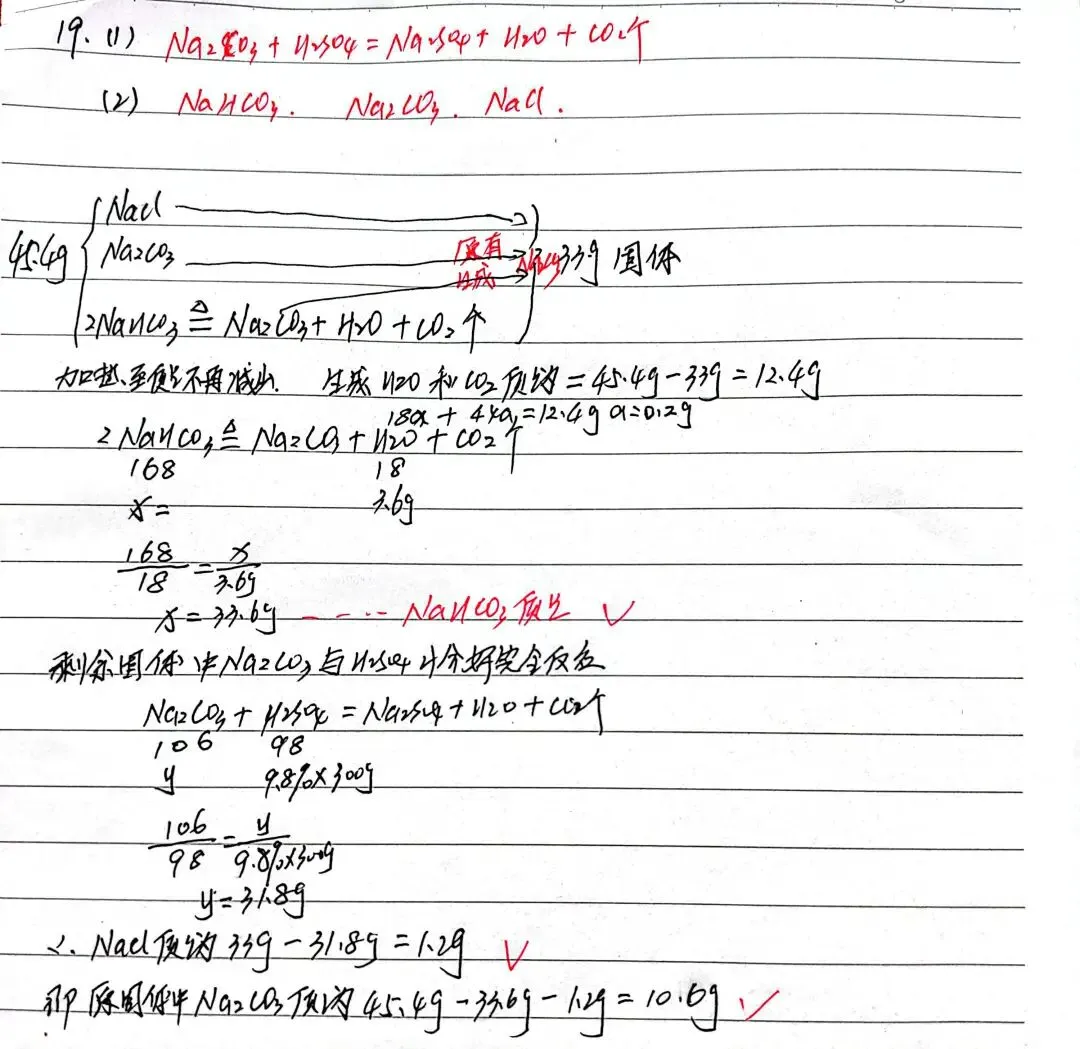 19. (1) Na2CO3 + H2SO4 = Na2SO4 + H2O + CO2↑
(2) NaHCO3. Na2CO3. NaCl.
45.4g { NaCl
Na2CO3 原有 Na2CO3 33g 固体
生成
2NaHCO3 ≜ Na2CO3 + H2O + CO2↑
加热至质量不再减少. 生成 H2O 和 CO2 质量为 = 45.4g - 33g = 12.4g
18a + 44a = 12.4g a = 0.2g
2NaHCO3 ≜ Na2CO3 + H2O + CO2↑
168 18
x = 3.6g
168/18 = x/3.6g
x = 33.6g - - ··· NaHCO3 质量 √
剩余固体中 Na2CO3 与 H2SO4 恰好完全反应
Na2CO3 + H2SO4 = Na2SO4 + H2O + CO2↑
106 98
y 9.8%×300g
106/98 = y/9.8%×300g
y = 31.8g
∴ NaCl 质量为 33g - 31.8g = 1.2g √
即 原固体中 Na2CO3 质量为 45.4g - 33.6g - 1.2g = 10.6g √